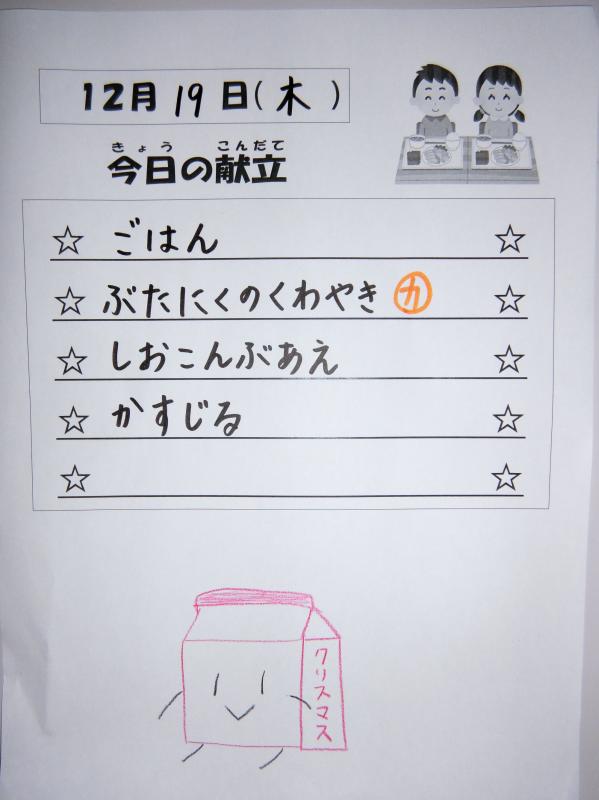 12月19日(木)
きょう こんだて
今日の献立
☆ ごはん ☆
☆ ぶたにくのくわやき カ ☆
☆ しおこんぶあえ ☆
☆ かすじる ☆
☆ ☆
クリスマス